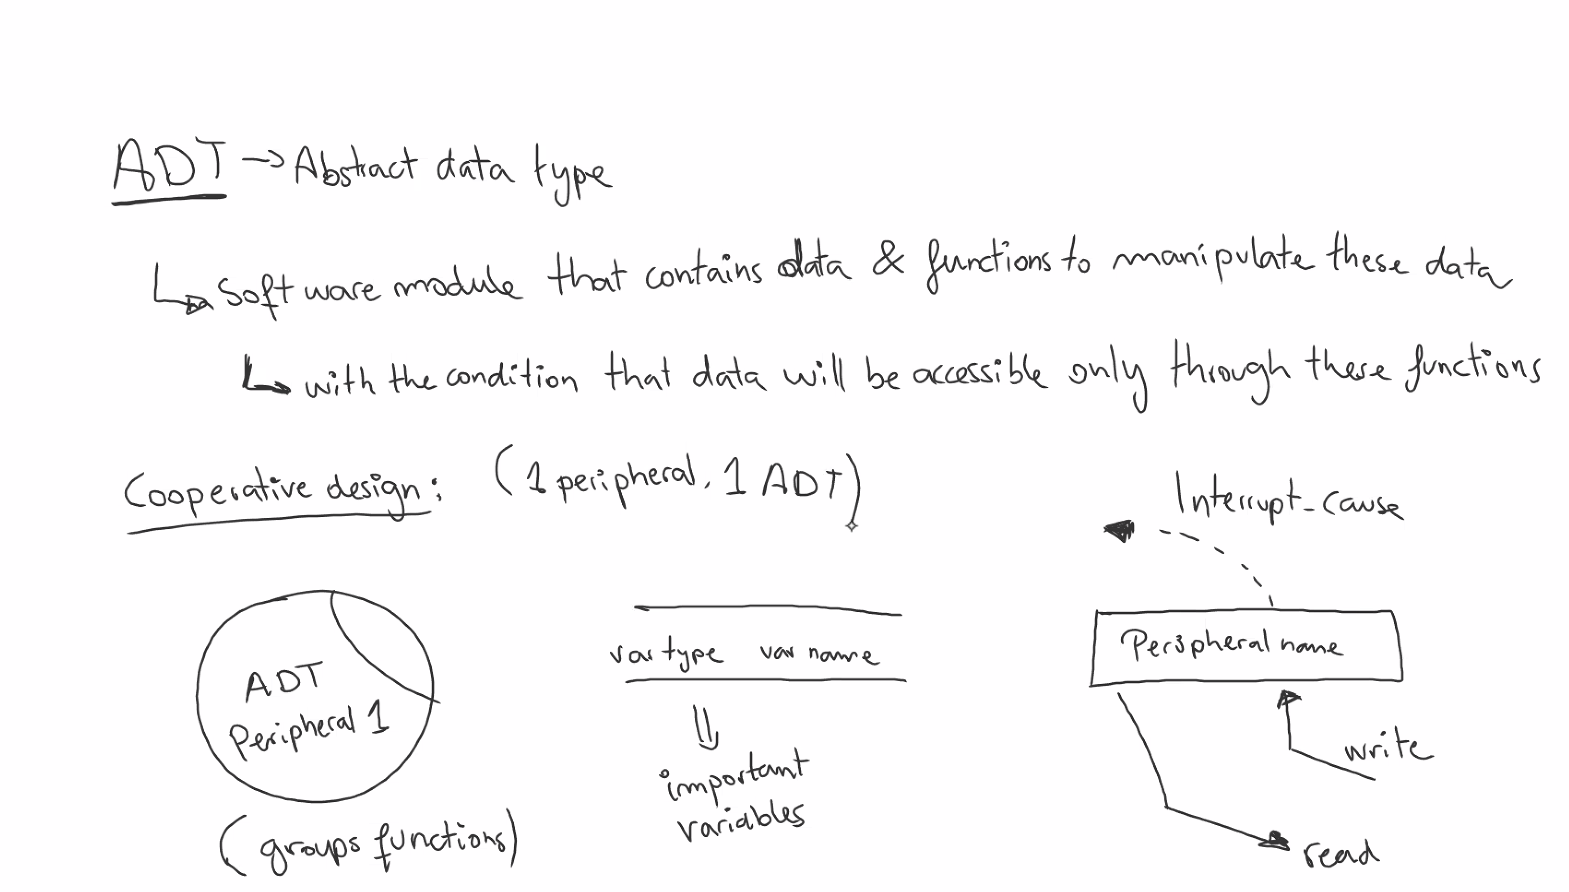 ADT → Abstract data type
↳ Software module that contains data & functions to manipulate these data
↳ with the condition that data will be accessible only through these functions
Cooperative design: (1 peripheral, 1 ADT)
Interrupt_cause
ADT
Peripheral 1
(groups functions)
var type var name
⇓
important
variables
Peripheral name
write
read